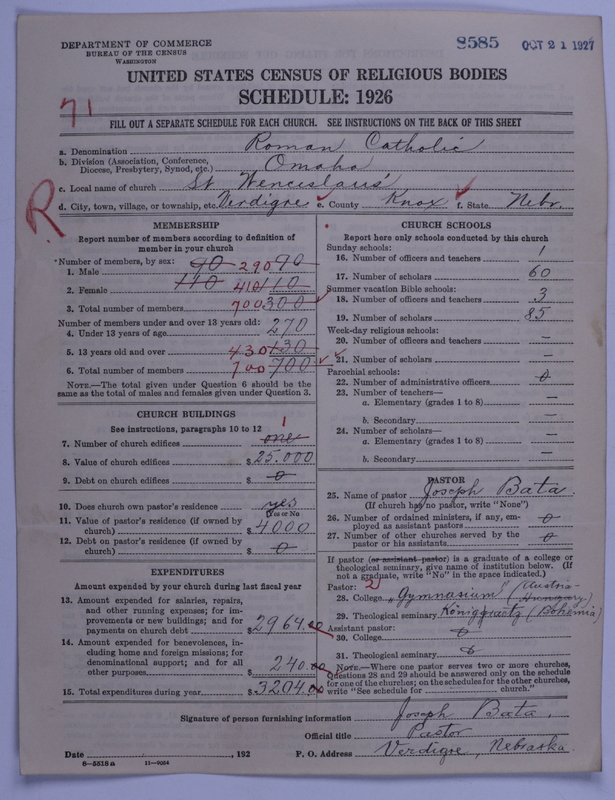 DEPARTMENT OF COMMERCE
BUREAU OF THE CENSUS
WASHINGTON
8585 OCT 21 1927
UNITED STATES CENSUS OF RELIGIOUS BODIES
SCHEDULE: 1926
71
FILL OUT A SEPARATE SCHEDULE FOR EACH CHURCH. SEE INSTRUCTIONS ON THE BACK OF THIS SHEET
a. Denomination Roman Catholic
b. Division (Association, Conference, Diocese, Presbytery, Synod, etc.) Omaha
c. Local name of church St Wenceslaus'
R
d. City, town, village, or township, etc. Verdigre e. County Knox f. State Nebr.
MEMBERSHIP
Report number of members according to definition of
member in your church
Number of members, by sex:
1. Male 90 290 90
2. Female 110 410 110
3. Total number of members 700 300
Number of members under and over 13 years old:
4. Under 13 years of age 270
5. 13 years old and over 430 130
6. Total number of members 700 700
NOTE.—The total given under Question 6 should be the
same as the total of males and females given under Question 3.
CHURCH BUILDINGS
See instructions, paragraphs 10 to 12
7. Number of church edifices one 1
8. Value of church edifices $25.000
9. Debt on church edifices $0
10. Does church own pastor's residence? yes
Yes or No
11. Value of pastor's residence (if owned by
church) $4000
12. Debt on pastor's residence (if owned by
church) $0
EXPENDITURES
Amount expended by your church during last fiscal year
13. Amount expended for salaries, repairs,
and other running expenses; for im-
provements or new buildings; and for
payments on church debt $2964.00
14. Amount expended for benevolences, in-
cluding home and foreign missions; for
denominational support; and for all
other purposes $240.00
15. Total expenditures during year $3204.00
CHURCH SCHOOLS
Report here only schools conducted by this church
Sunday schools:
16. Number of officers and teachers 1
17. Number of scholars 60
Summer vacation Bible schools:
18. Number of officers and teachers 3
19. Number of scholars 85
Week-day religious schools:
20. Number of officers and teachers —
21. Number of scholars —
Parochial schools:
22. Number of administrative officers 0
23. Number of teachers—
a. Elementary (grades 1 to 8) —
b. Secondary —
24. Number of scholars—
a. Elementary (grades 1 to 8) —
b. Secondary —
PASTOR
25. Name of pastor Joseph Bata
(If church has no pastor, write "None")
26. Number of ordained ministers, if any, em-
ployed as assistant pastors 0
27. Number of other churches served by the
pastor or his assistants 0
If pastor (or assistant pastor) is a graduate of a college or
theological seminary, give name of institution below. (If
not a graduate, write "No" in the space indicated.)
Pastor: 2
28. College Gymnasium (Austria-Hungary)
29. Theological seminary Königgraetz (Bohemia)
Assistant pastor:
30. College 0
31. Theological seminary 0
NOTE.—Where one pastor serves two or more churches,
Questions 28 and 29 should be answered only on the schedule
for one of the churches; on the schedules for the other churches,
write "See schedule for church."
Signature of person furnishing information Joseph Bata.
Official title Pastor
Date , 192 P. O. Address Verdigre, Nebraska.
8—5518a 11—9034